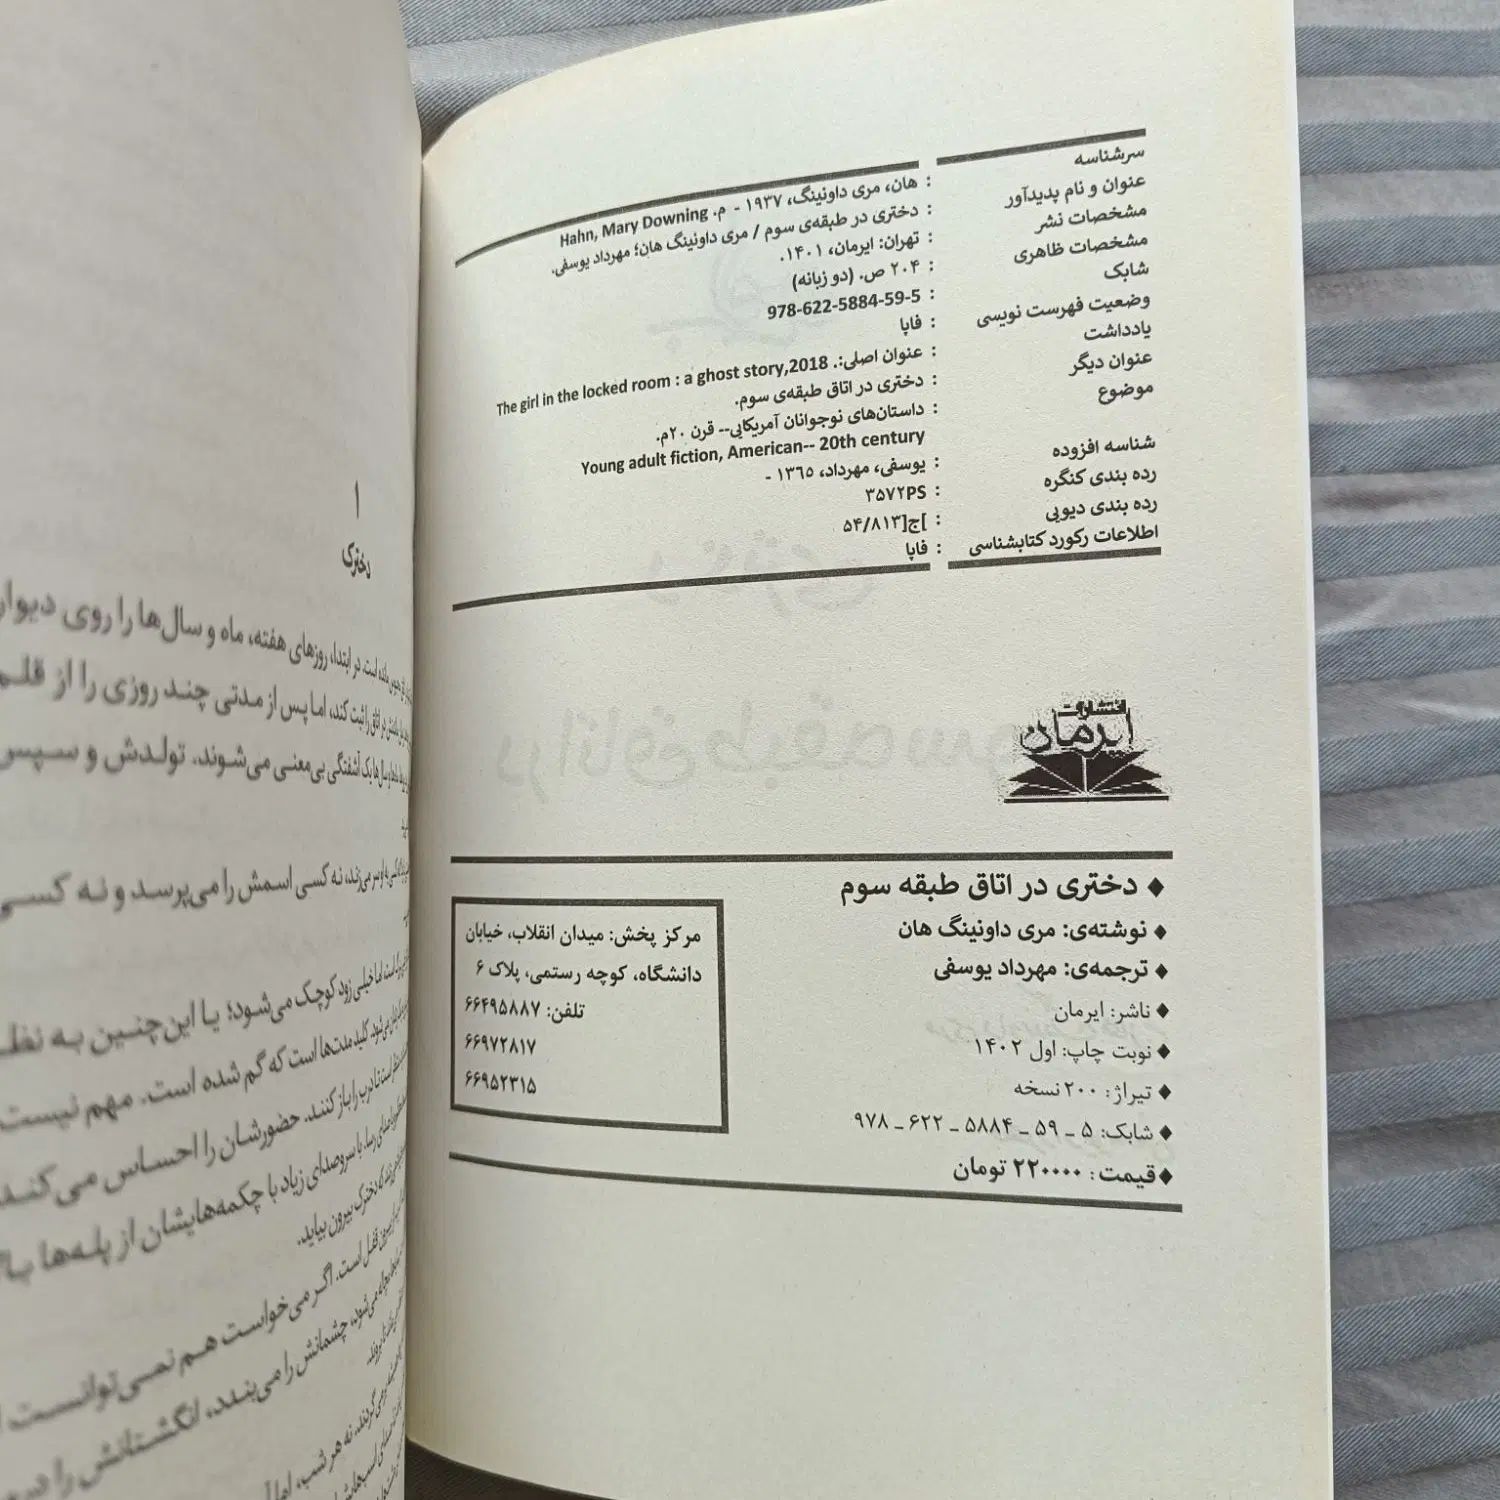 سرشناسه : هان، مری داونینگ، ۱۹۳۷ - م. Hahn, Mary Downing
عنوان و نام پدیدآور : دختری در طبقه‌ی سوم / مری داونینگ هان؛ مهرداد یوسفی.
مشخصات نشر : تهران: ایرمان، ۱۴۰۱.
مشخصات ظاهری : ۲۰۴ ص. (دو زبانه)
شابک : 978-622-5884-59-5
وضعیت فهرست نویسی : فاپا
یادداشت : عنوان اصلی:. The girl in the locked room : a ghost story,2018
عنوان دیگر : دختری در اتاق طبقه‌ی سوم.
موضوع : داستان‌های نوجوانان آمریکایی-- قرن ۲۰م.
Young adult fiction, American-- 20th century
شناسه افزوده : یوسفی، مهرداد، ۱۳۶۵ -
رده بندی کنگره : ۳۵۷۲PS
رده بندی دیویی : ]ج[۵۴/۸۱۳
اطلاعات رکورد کتابشناسی : فاپا
انتشارات
ایرمان
◆ دختری در اتاق طبقه سوم
◆ نوشته‌ی: مری داونینگ هان
◆ ترجمه‌ی: مهرداد یوسفی
◆ ناشر: ایرمان
◆ نوبت چاپ: اول ۱۴۰۲
◆ تیراژ: ۲۰۰ نسخه
◆ شابک: ۵ ـ ۵۹ ـ ۵۸۸۴ ـ ۶۲۲ ـ ۹۷۸
◆ قیمت: ۲۲۰۰۰۰ تومان
مرکز پخش: میدان انقلاب، خیابان
دانشگاه، کوچه رستمی، پلاک ۶
تلفن: ۶۶۴۹۵۸۸۷
۶۶۹۷۲۸۱۷
۶۶۹۵۲۳۱۵
۱
دخترک
مانده است. در ابتدا، روزهای هفته، ماه و سال‌ها را روی دیوار
را ثبت کند، اما پس از مدتی چند روزی را از قلم
یک آشفتگی بی‌معنی می‌شوند. تولدش و سپس
سر می‌زند، نه کسی اسمش را می‌پرسد و نه کسی
است، اما خیلی زود کوچک می‌شود؛ یا این‌چنین به نظر
می‌شود. کلید مدت‌ها است که گم شده است. مهم نیست
تا درب را باز کنند. حضورشان را احساس می‌کند
با سروصدای زیاد با چکمه‌هایشان از پله‌ها
دخترک بیرون بیاید.
قفل است. اگر می‌خواست هم نمی‌توانست
می‌شود، چشمانش را می‌بندد، انگشتانش را
نه هر شب، اما